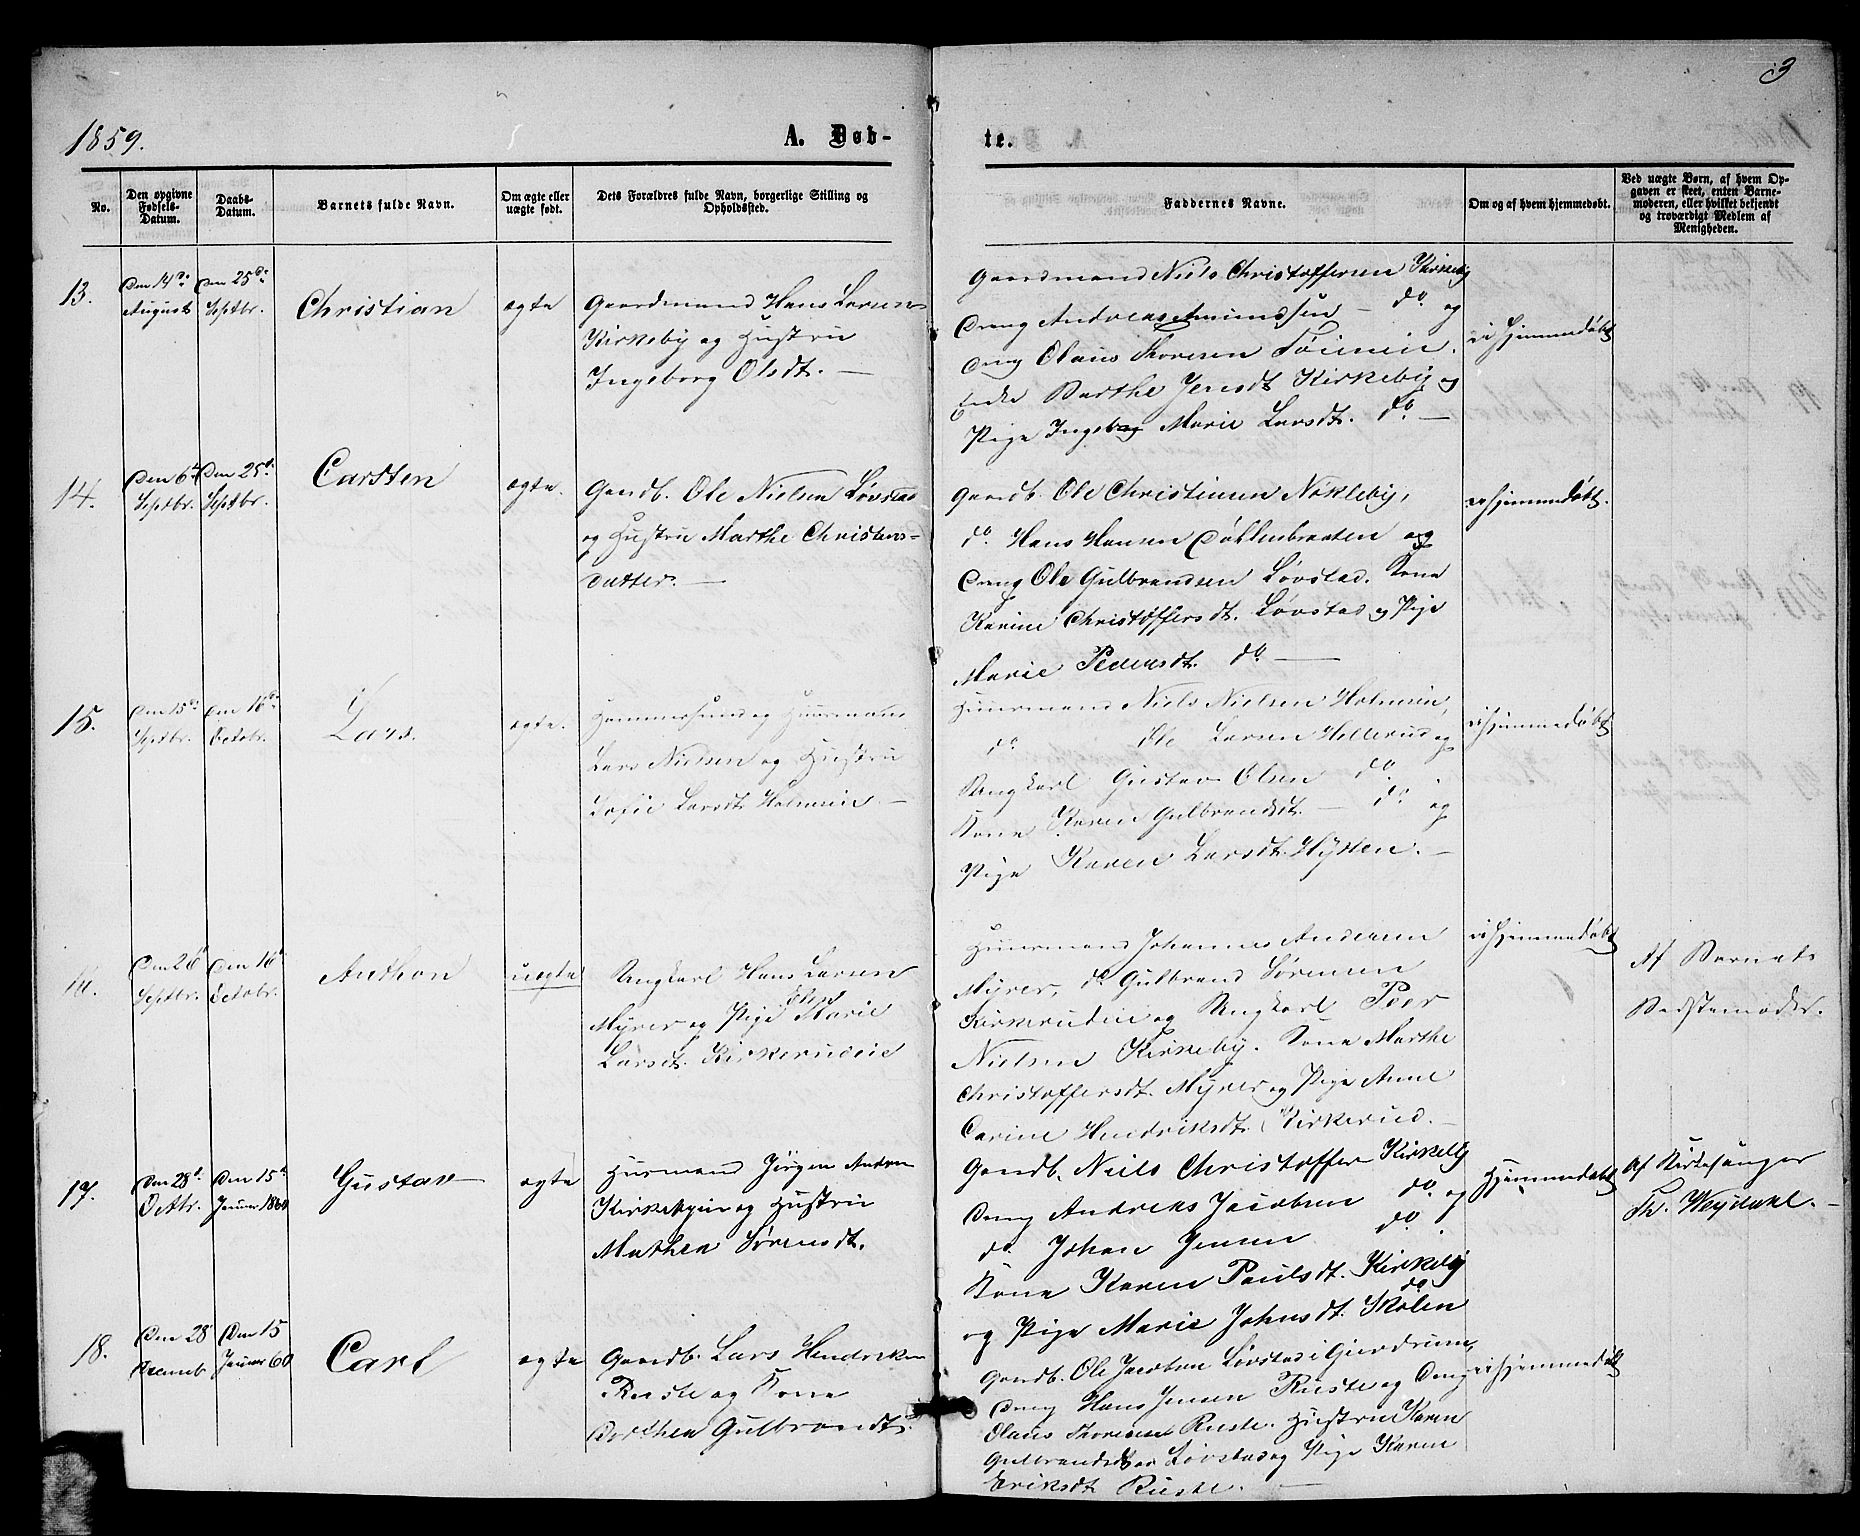 3
1859.
A. Døb-
te.
No.
Den opgivne Fødsels-Datum.
Daabs-Datum.
Barnets fulde Navn.
Om ægte eller uægte født.
Dets Forældres fulde Navn, borgerlige Stilling og Opholdssted.
Faddernes Navne.
Om og af hvem hjemmedøbt.
Ved uægte Børn, af hvem Opgaven er skeet, enten Barnemoderen, eller hvilket bekjendt og troværdigt Medlem af Menigheden.
13.
Den 14de
August
Den 25de
Septbr.
Christian
ægte
Gaardmand Hans Larsen
Kirkeby og Hustru
Ingeborg Olsdt. —
Gaardmand Niels Christoffersen Kirkeby
Dreng Andreas Amundsen — do. og
Dreng Olaus Thoresen
Enke Berthe Jensdt Kirkeby og
Pige Ingeborg Marie Larsdt. do —
ei Hjemmedøbt
14.
Den 6te
Septbr.
Den 25de
Septbr.
Carsten
ægte.
Gaardb. Ole Nielsen Løvstad
og Hustru Marthe Christens-
datter. —
Gaardb. Ole Christensen Nökleby,
do. Hans Hansen Døhlenbraaten og
Dreng Ole Gulbrandsen Løvstad. Kone
Karine Christoffersdt. Løvstad og Pige
Marie Pedersdt. do —
ei Hjemmedøbt.
15.
Den 15de
Septbr.
Den 16de
Octobr.
Lars.
ægte.
Huusmand
Lars Nielsen og Hustru
Sofie Larsdt Holmeie —
Huusmand Niels Nielsen Holmeie,
do Ole Larsen Hellerud og
Ungkarl Gustav Olsen do.
Kone Karen Gulbrandsdt. — do. og
Pige Karen Larsdt. Hysten. —
ei Hjemmedøbt
16.
Den 26de
Septbr.
Den 16de
Octobr.
Anthon
uægte
Ungkarl Hans Larsen
Myrer og Pige Elen Marie
Larsdt. Kirkerudeie
Huusmand Johannes Andersen
Myrer, do. Gulbrand Sörensen
Kirkerudeie og Ungkarl Peer
Nielsen Kirkeby. Kone Marthe
Christoffersdt. Myrer og Pige Anne
Carine Hendriksdt. Kirkerud. —
ei Hjemmedøbt
Af Barnets
Bedstemoder.
17.
Den 28de
Octbr.
Den 15de
Januar 1860
Gustav —
ægte
Husmand Jörgen Andersen
Kirkebyeie og Hustru
Mathea Sörensdt.
Gaardb. Niels Christoffersen Kirkeby
Dreng Andreas Jacobsen do. og
do. Johan Jensen do.
Kone Karen Paulsdt. Kirkeby
og Pige Marie Johnsdt. Skolen do
Hjemmedøbt
Af Kirkesanger
Th. Weydahl. —
18.
Den 28
Decemb
Den 15
Januar 60
Carl
ægte
Gaardb. Lars Hendriksen
Ruste og Kone
Dorthea Gulbrandsdt.
Gaardb. Ole Jacobsen Løvstad i Gjerdrum,
Dreng Hans Jensen Ruste og Dreng
Olaus Thoresen Ruste. Hustru Karen
Gulbrandsdtr Løvstad og Pige Karen
Eriksdt Ruste. —
ei Hjemmedøbt